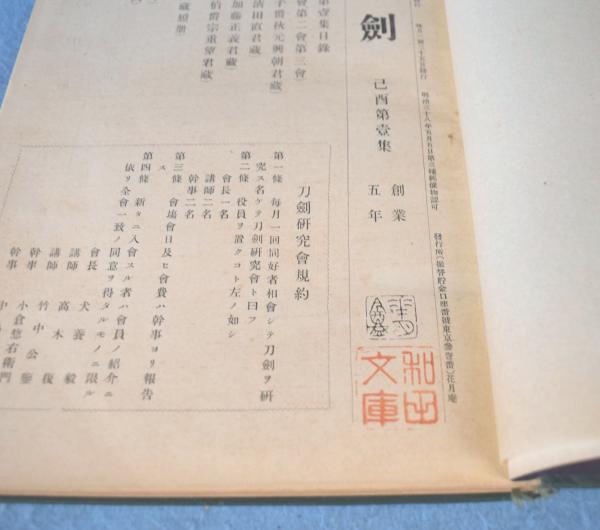 明治三十八年五月五日第三種郵便物認可
發行所(振替貯金口座番號東京參壹番)花月庵
劍
己酉第壹集
創業五年
和田文庫
第壹集目錄
會第二會第三會)
子爵秋元興朝君藏)
濱田直君藏)
加藤正義君藏)
伯爵宗重望君藏)
刀劍研究會規約
第一條 每月一回同好者相會シテ刀劍ヲ研
究ス名ケテ刀劍研究會ト曰フ
第二條 役員ヲ置クコト左ノ如シ
會長一名
講師二名
幹事二名
第三條 會塲會日及ヒ會費ハ幹事ヨリ報告
ス
第四條 新タニ入會スル者ハ會員ノ紹介ニ
依リ全會一致ノ同意ヲ得タルモノニ限ル
會長 犬養毅
講師 高木復
講師 竹中公鑒
幹事 小倉惣右衛門
幹事